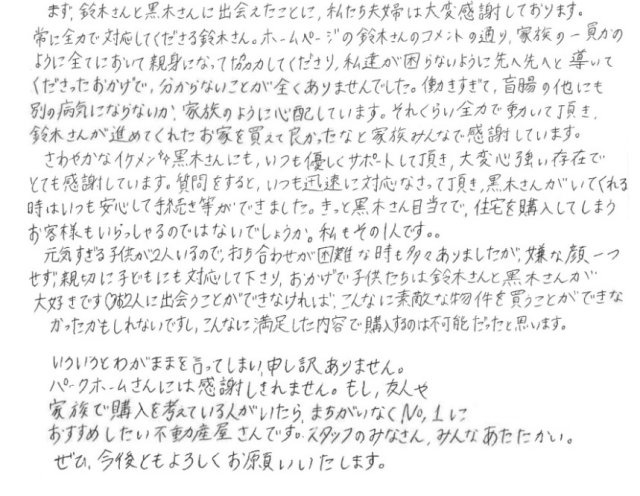 まず、鈴木さんと黒木さんに出会えたことに、私たち夫婦は大変感謝しております。
常に全力で対応してくださる鈴木さん。ホームページの鈴木さんのコメントの通り、家族の一員かの
ように全てにおいて親身になって協力してくださり、私達が困らないように先へ先へと導いて
くださったおかげで、分からないことが全くありませんでした。働きすぎて、盲腸の他にも
別の病気にならないか、家族のように心配しています。それくらい全力で動いて頂き、
鈴木さんが進めてくれたお家を買えて良かったなと家族みんなで感謝しています。
さわやかなイケメンな黒木さんにも、いつも優しくサポートして頂き、大変心強い存在で
とても感謝しています。質問をすると、いつも迅速に対応なさって頂き、黒木さんがいてくれる
時はいつも安心して手続き等ができました。きっと黒木さん目当てで、住宅を購入してしまう
お客様もいらっしゃるのではないでしょうか。私もその1人です。。
元気すぎる子供が2人いるので、打ち合わせが困難な時も多々ありましたが、嫌な顔一つ
せず、親切に子どもにも対応して下さり、おかげで子供たちは鈴木さんと黒木さんが
大好きです♡お2人に出会うことができなければ、こんなに素敵な物件を買うことができな
かったかもしれないですし、こんなに満足した内容で購入するのは不可能だったと思います。
いろいろとわがままを言ってしまい、申し訳ありません。
パークホームさんには感謝しきれません。もし、友人や
家族で購入を考えている人がいたら、まちがいなくNo,1に
おすすめしたい不動産屋さんです。スタッフのみなさん、みんなあたたかい。
ぜひ、今後ともよろしくお願いいたします。